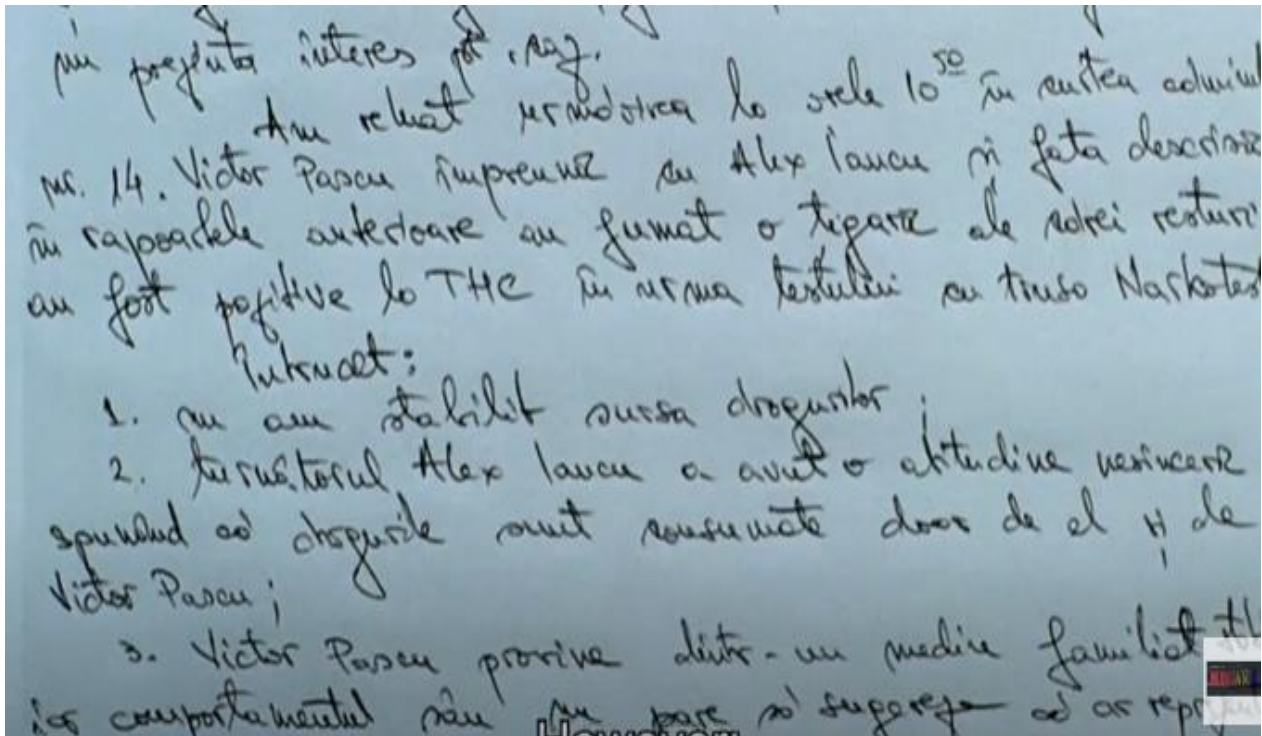 nu prezintă interes pt. caz.
Am reluat urmărirea la orele 10⁵⁰ în curtea
nr. 14. Victor Pascu împreună cu Alex Iancu și fata descrisă
în rapoartele anterioare au fumat o țigară ale cărei resturi
au fost pozitive la THC în urma testului cu trusa Narkotest
Întrucât:
1. nu am stabilit sursa drogurilor;
2. turnătorul Alex Iancu a avut o atitudine nesinceră
spunând că drogurile sunt consumate doar de el și de
Victor Pascu;
3. Victor Pascu provine dintr-un mediu familial
iar comportamentul său nu pare să sugereze că ar
However